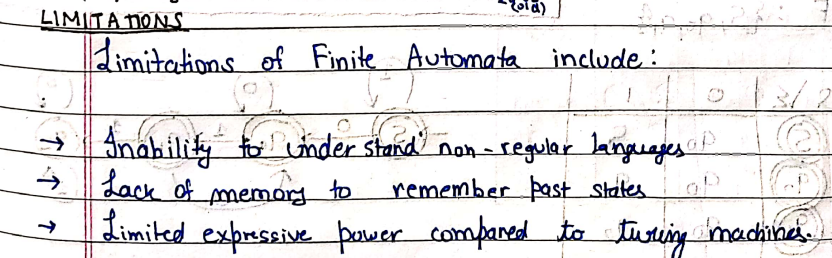 LIMITATIONS
Limitations of Finite Automata include :
:
→ Inability to understand non-regular languages
→ Lack of memory to remember past states
→ Limited expressive power compared to turing machines.